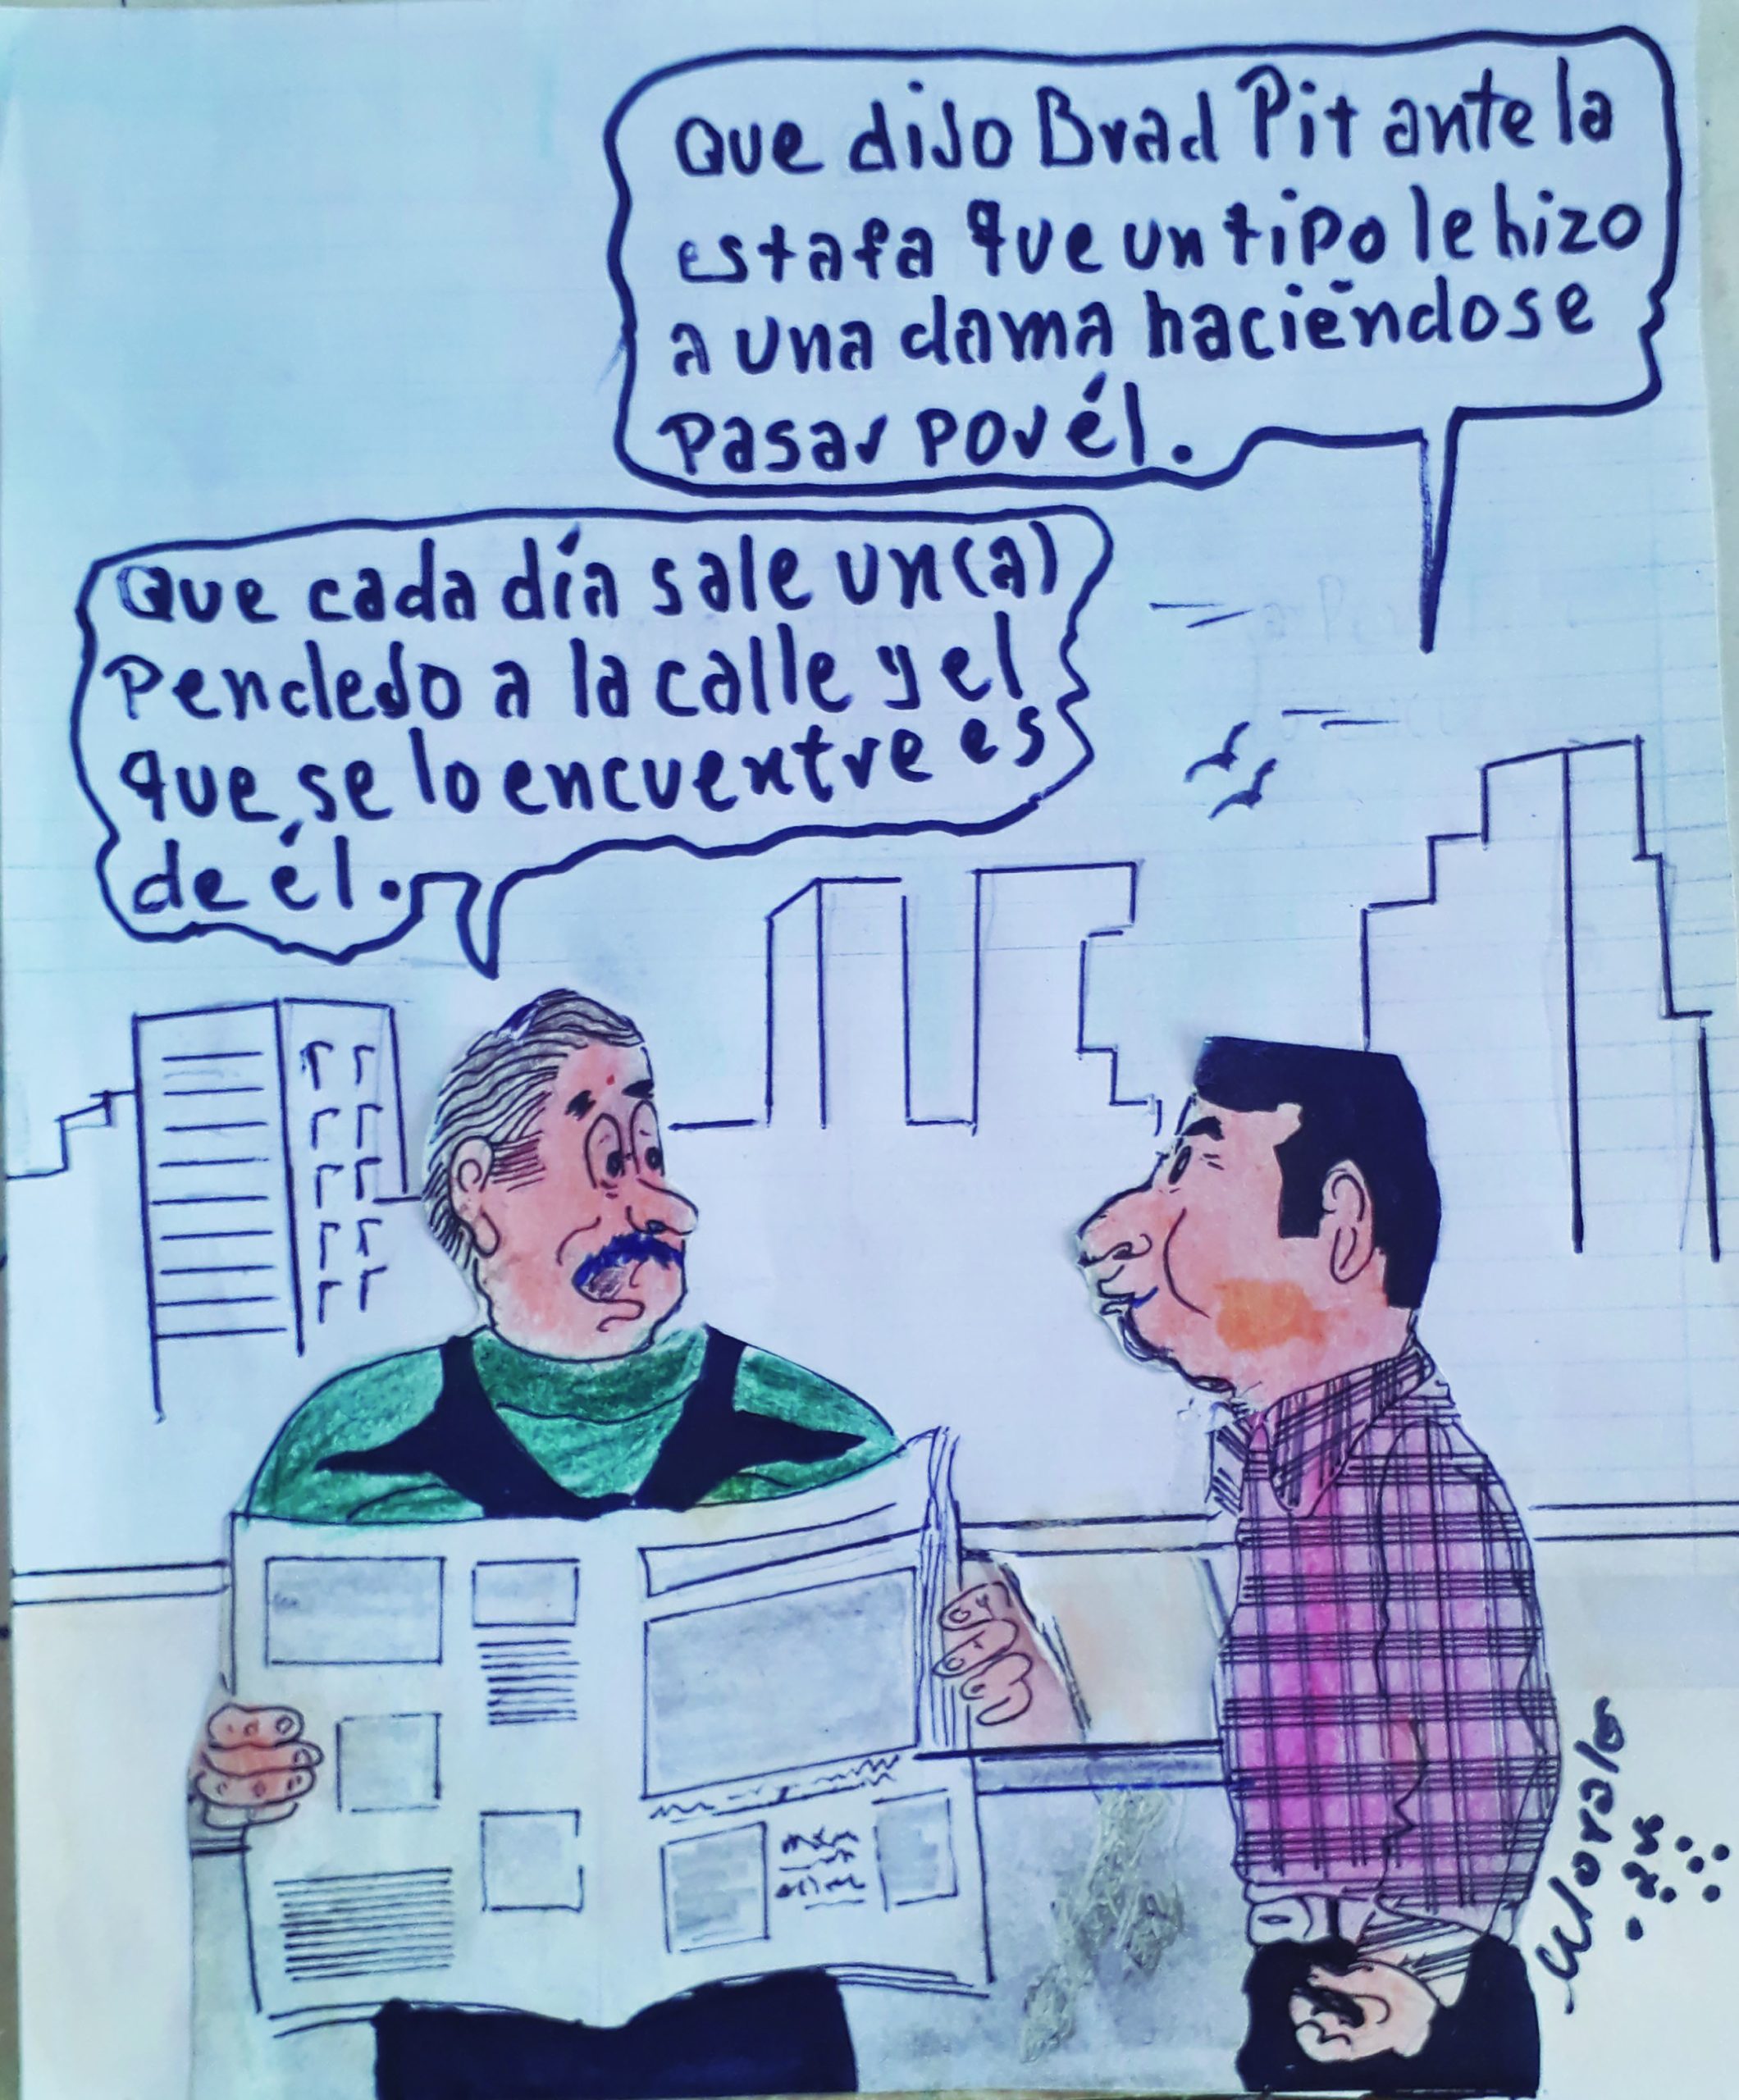 Que dijo Brad Pit ante la
estafa que un tipo le hizo
a una dama haciéndose
pasar por él.
Que cada día sale un(a)
pendejo a la calle y el
que se lo encuentre es
de él.
Morales